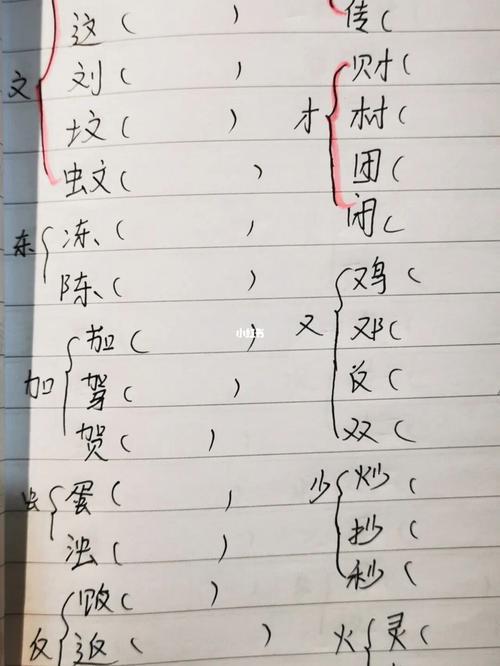 这(
文
刘( )
坟( )
蚊( )
东
冻( )
陈( )
加
茄( )
驾( )
贺( )
虫
蛋( )
浊( )
反
返( )
传(
才
财(
材(
团(
闭(
又
鸡(
邓(
双(
少
炒(
抄(
秒(
火
灵(
小红书